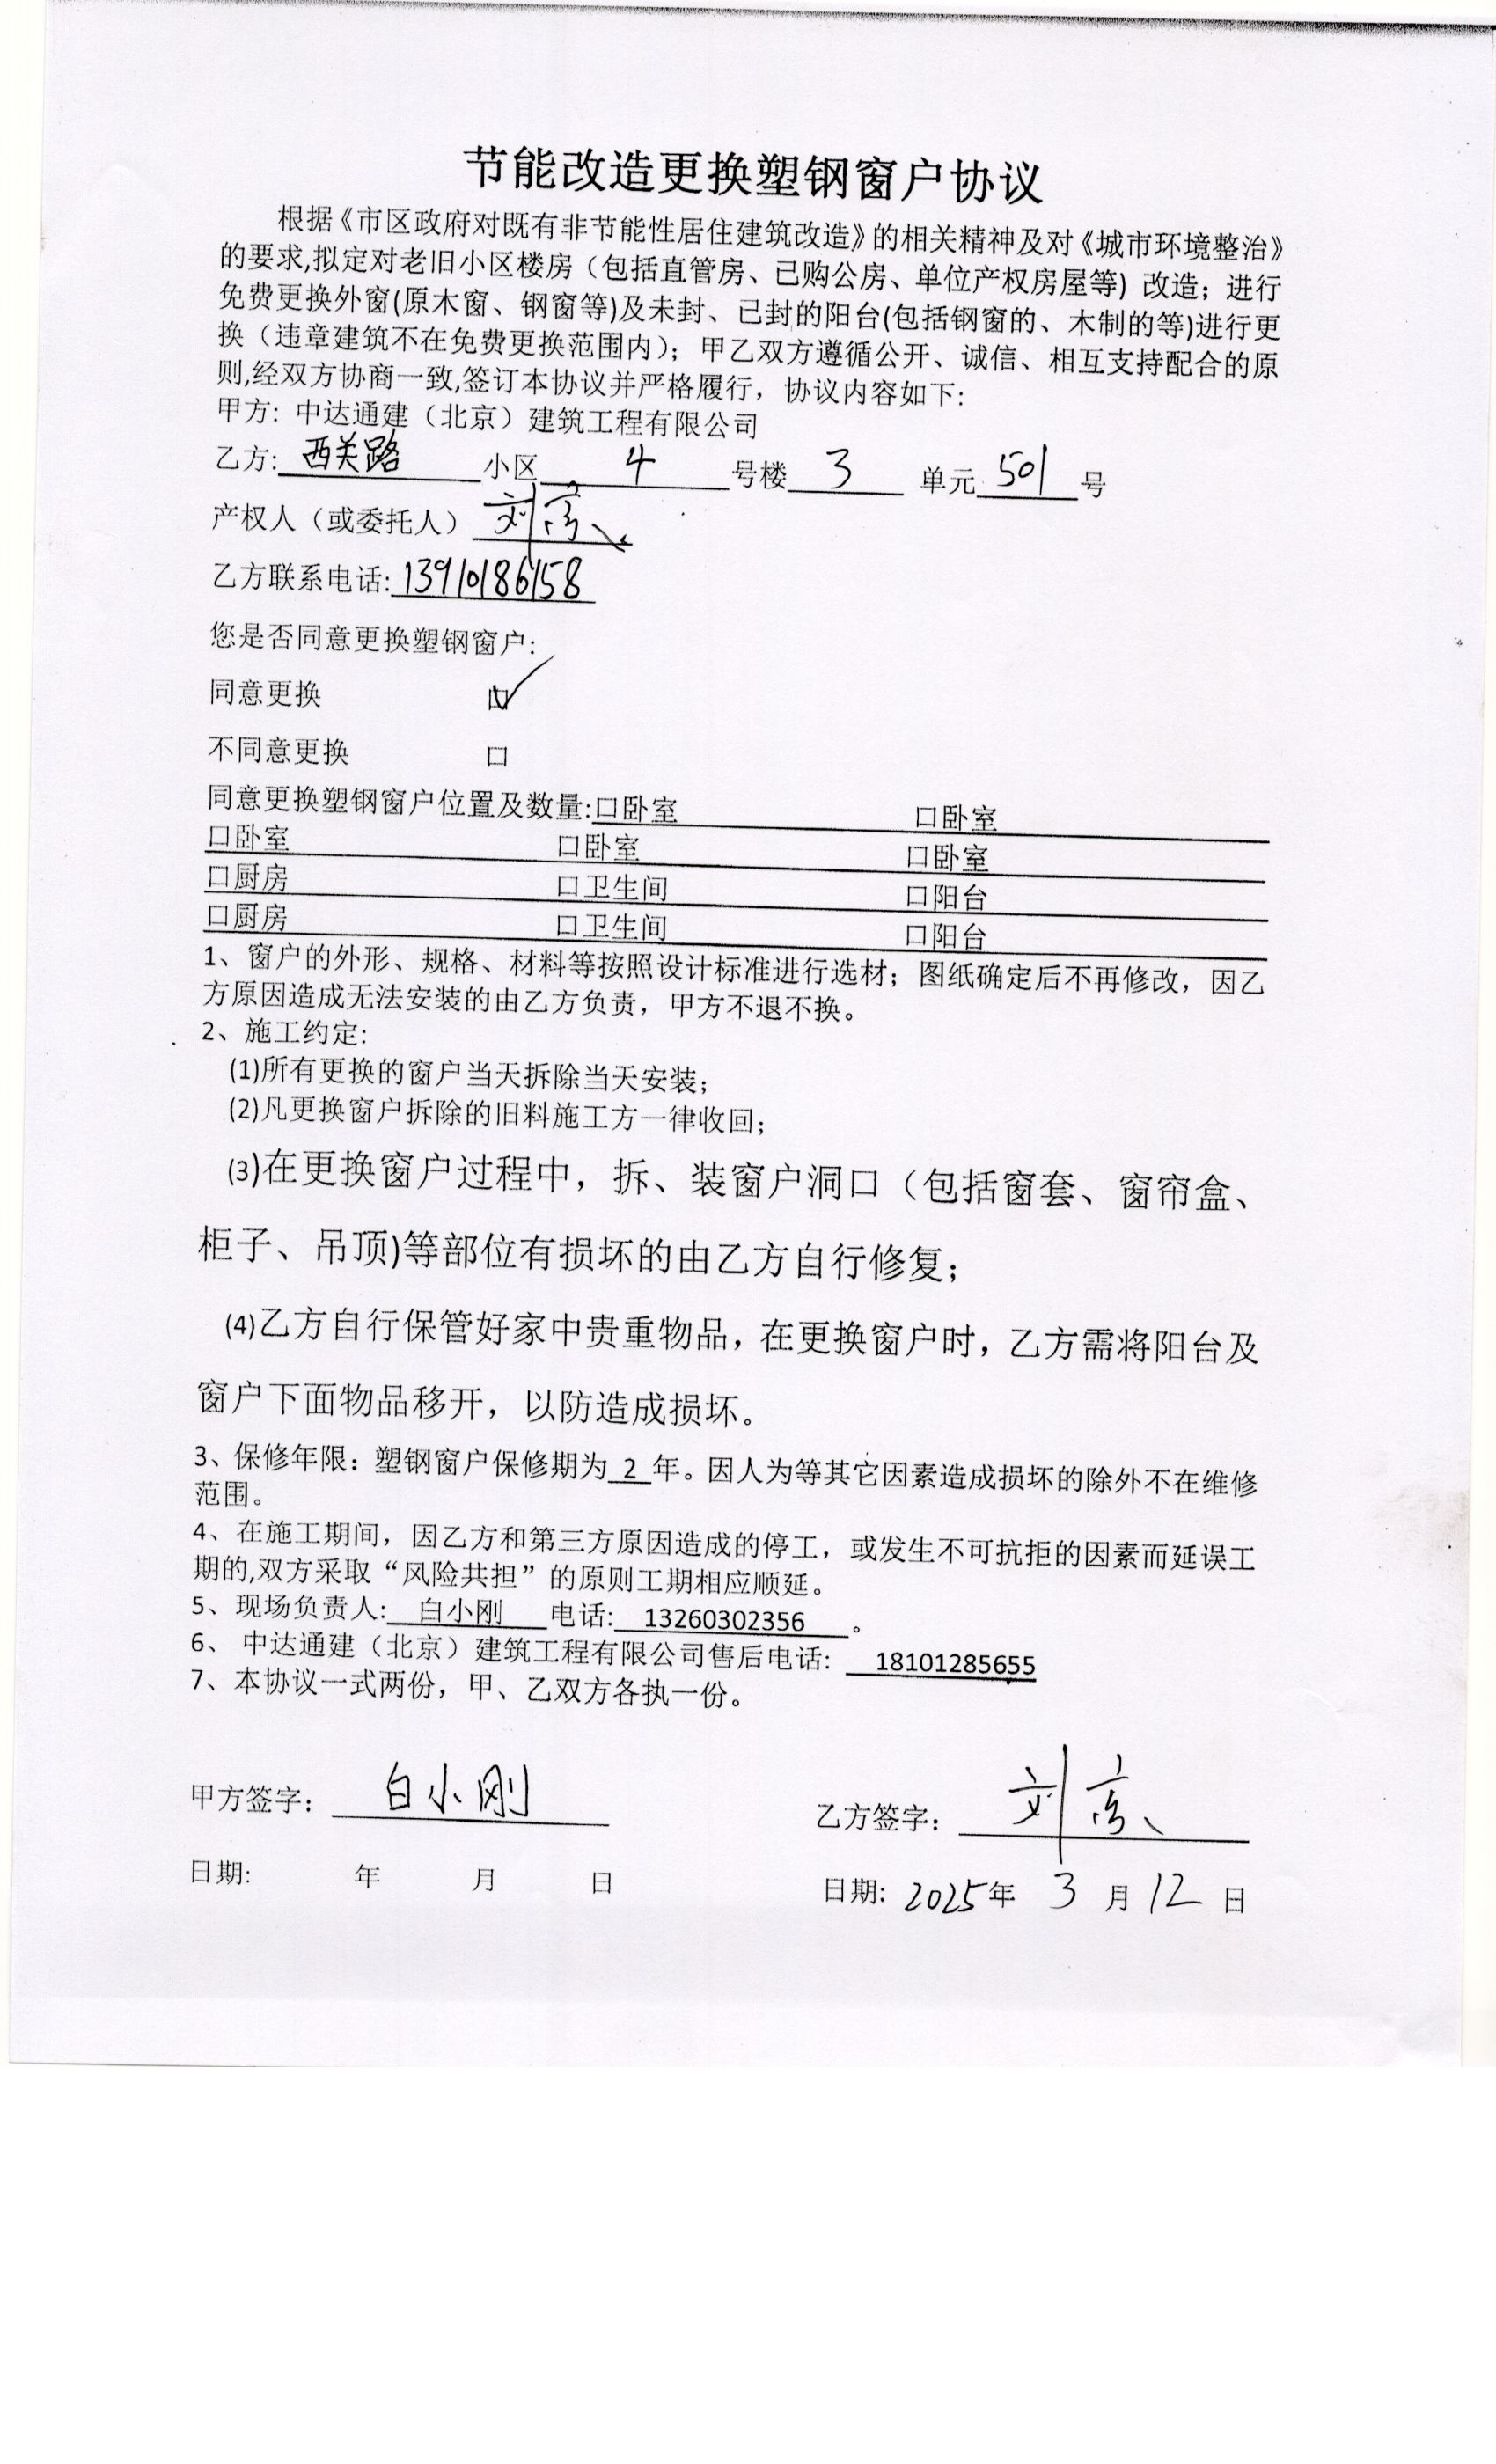 节能改造更换塑钢窗户协议
根据《市区政府对既有非节能性居住建筑改造》的相关精神及对《城市环境整治》
的要求,拟定对老旧小区楼房（包括直管房、已购公房、单位产权房屋等) 改造；进行
免费更换外窗(原木窗、钢窗等)及未封、已封的阳台(包括钢窗的、木制的等)进行更
换（违章建筑不在免费更换范围内）；甲乙双方遵循公开、诚信、相互支持配合的原
则,经双方协商一致,签订本协议并严格履行，协议内容如下：
甲方：中达通建（北京）建筑工程有限公司
乙方: 西关路 小区 4 号楼 3 单元 501 号
产权人（或委托人） 刘
乙方联系电话: 13910186158
您是否同意更换塑钢窗户:
同意更换 口
不同意更换 口
同意更换塑钢窗户位置及数量:口卧室 口卧室
口卧室 口卧室 口卧室
口厨房 口卫生间 口阳台
口厨房 口卫生间 口阳台
1、窗户的外形、规格、材料等按照设计标准进行选材；图纸确定后不再修改，因乙
方原因造成无法安装的由乙方负责，甲方不退不换。
2、施工约定:
(1)所有更换的窗户当天拆除当天安装；
(2)凡更换窗户拆除的旧料施工方一律收回；
(3)在更换窗户过程中，拆、装窗户洞口（包括窗套、窗帘盒、
柜子、吊顶)等部位有损坏的由乙方自行修复；
(4)乙方自行保管好家中贵重物品，在更换窗户时，乙方需将阳台及
窗户下面物品移开，以防造成损坏。
3、保修年限：塑钢窗户保修期为 2 年。因人为等其它因素造成损坏的除外不在维修
范围。
4、在施工期间，因乙方和第三方原因造成的停工，或发生不可抗拒的因素而延误工
期的,双方采取“风险共担”的原则工期相应顺延。
5、现场负责人: 白小刚 电话: 13260302356 。
6、 中达通建（北京）建筑工程有限公司售后电话： 18101285655
7、本协议一式两份，甲、乙双方各执一份。
甲方签字： 白小刚
乙方签字： 刘
日期: 年 月 日
日期: 2025年 3 月 12 日